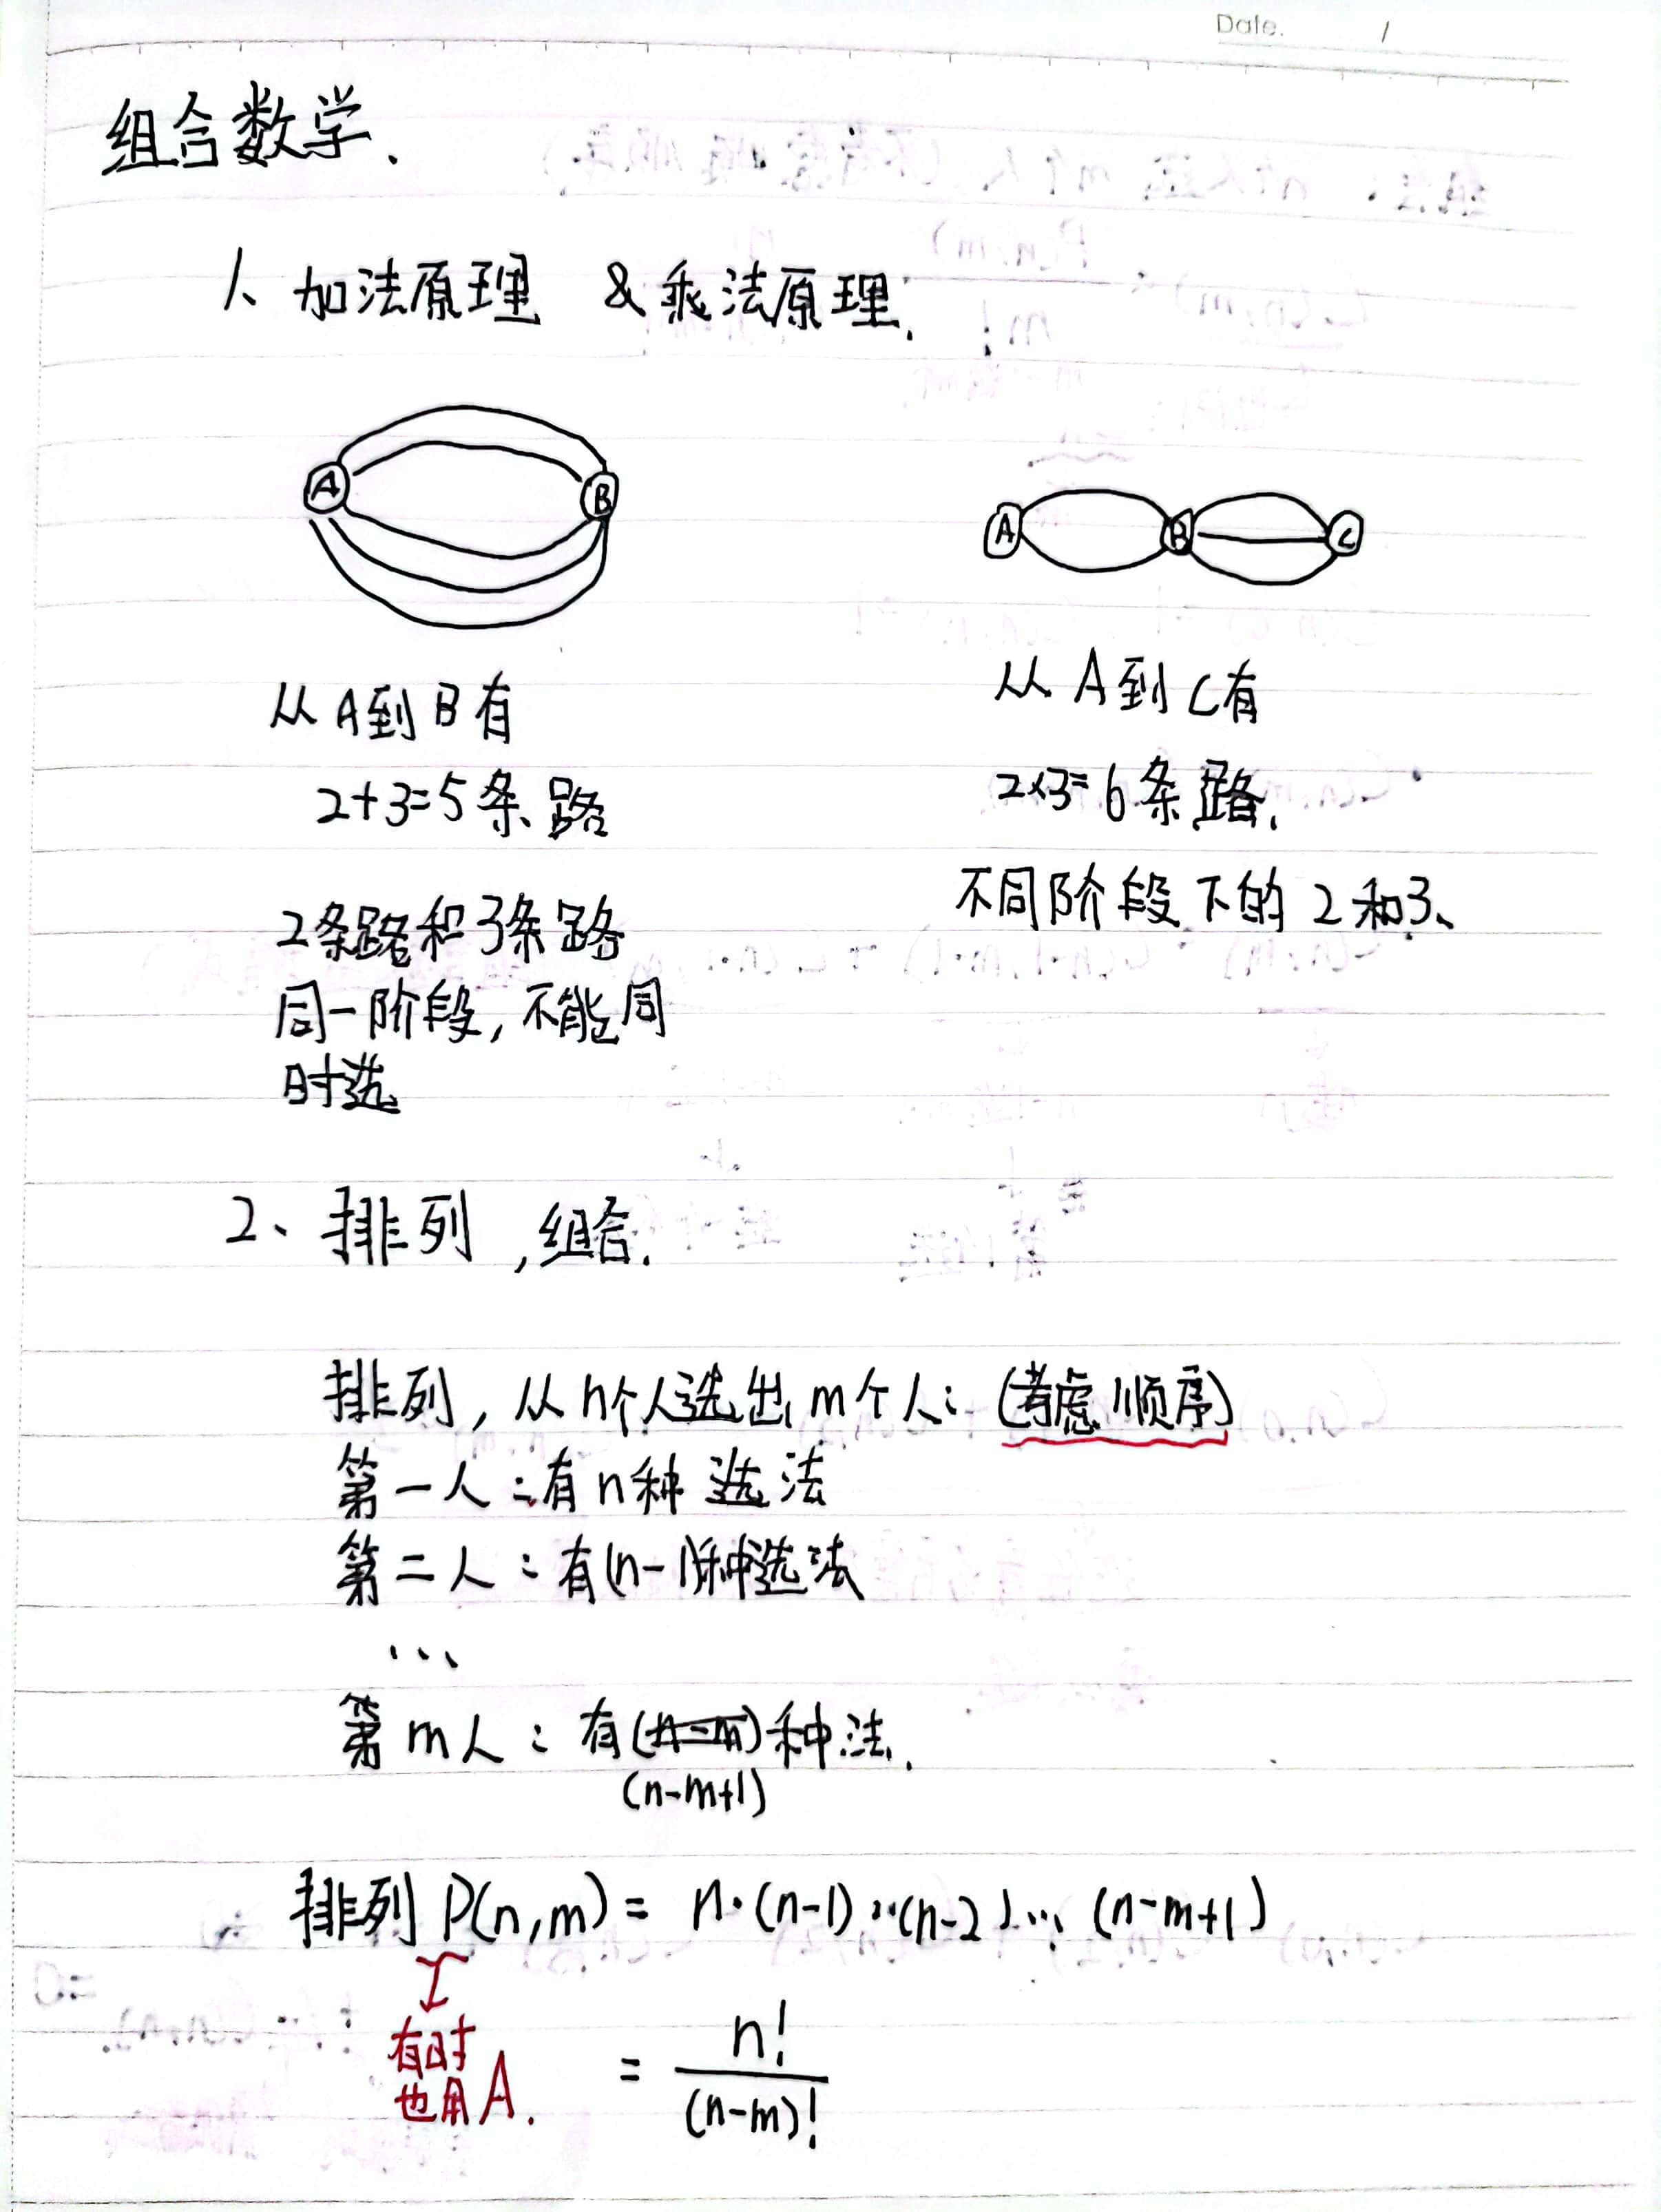 Date. /
组合数学.
1、加法原理 & 乘法原理.
A B
A B C
从A到B有
2+3=5条路
2条路和3条路
同一阶段,不能同
时选
从A到C有
2×3=6条路.
不同阶段下的2和3、
2、排列,组合.
排列,从n个人选出m个人:(考虑顺序)
第一人:有n种选法
第二人:有(n-1)种选法
...
第m人:有(n-m)种法.
(n-m+1)
排列 P(n,m) = n·(n-1)·(n-2)...(n-m+1)
有时
也用A.
= n!/(n-m)!